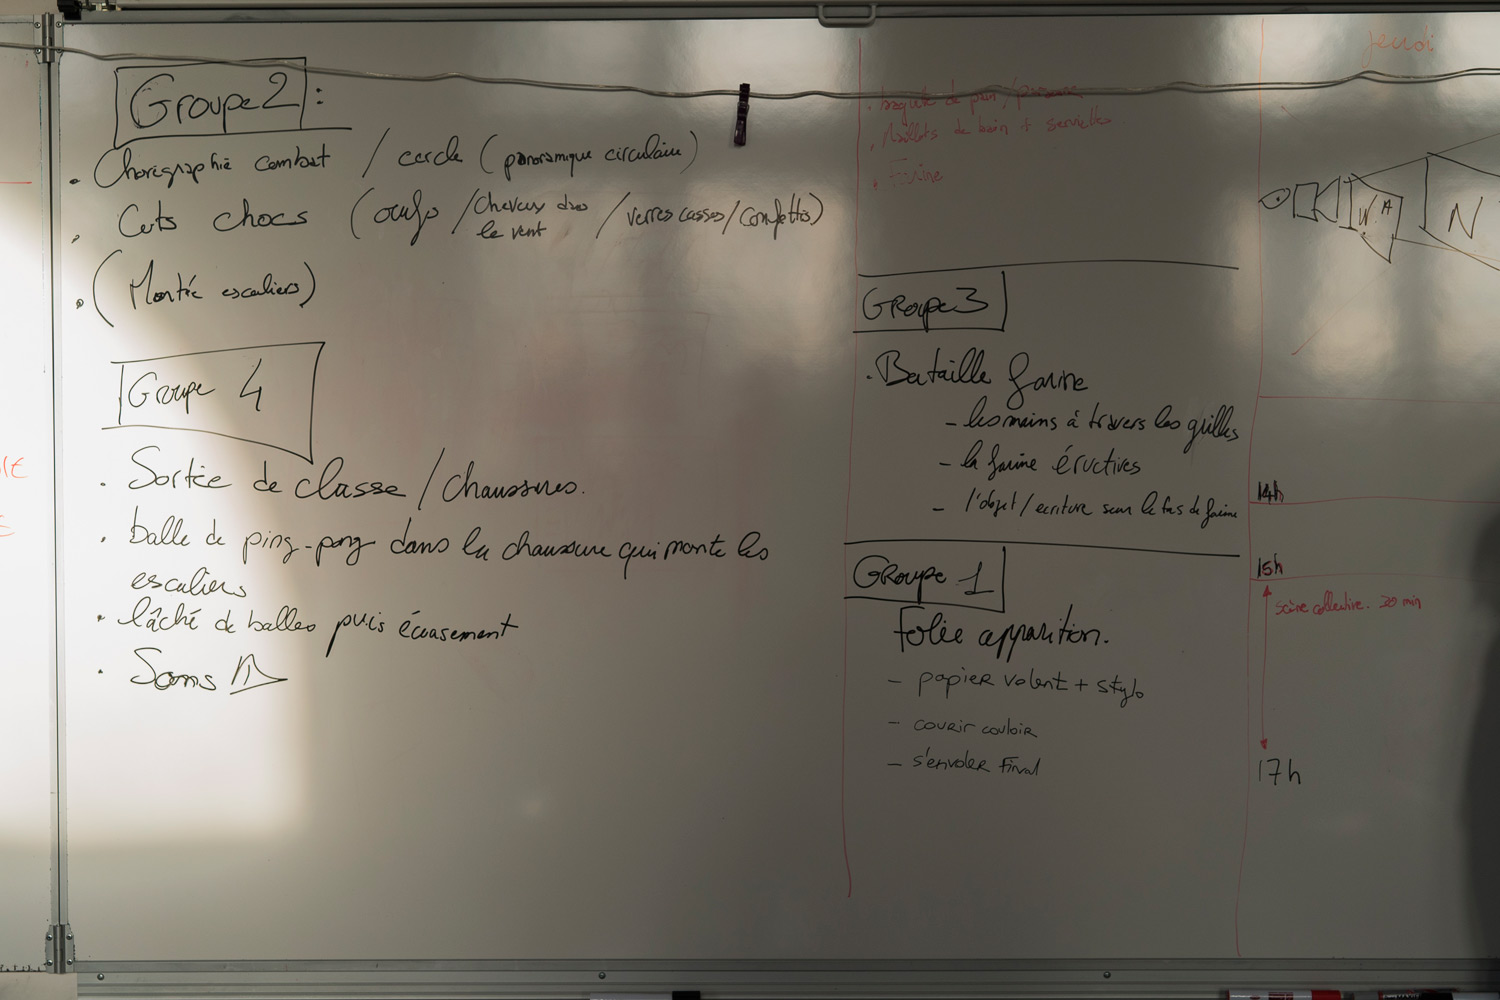 Groupe 2 :
. Chorégraphie combat / cercle (panoramique circulaire)
. Cuts chocs (oeufs / cheveux dans le vent / verres cassés / confettis)
. (Montée escaliers)
Groupe 4
. Sortie de classe / chaussures.
. balle de ping-pong dans la chaussure qui monte les
escaliers
. lâché de balles puis écrasement
. Sons
. baguette de pain /
. Maillots de bain + serviettes
. Farine
Groupe 3
. Bataille farine
- les mains à travers les grilles
- la farine éructives
- l'objet / écriture sur le tas de farine
Groupe 1
Folie apparition.
- papier volant + stylo
- courir couloir
- s'envoler Final
jeudi
N
14h
15h
scène collective. 30 min
17h